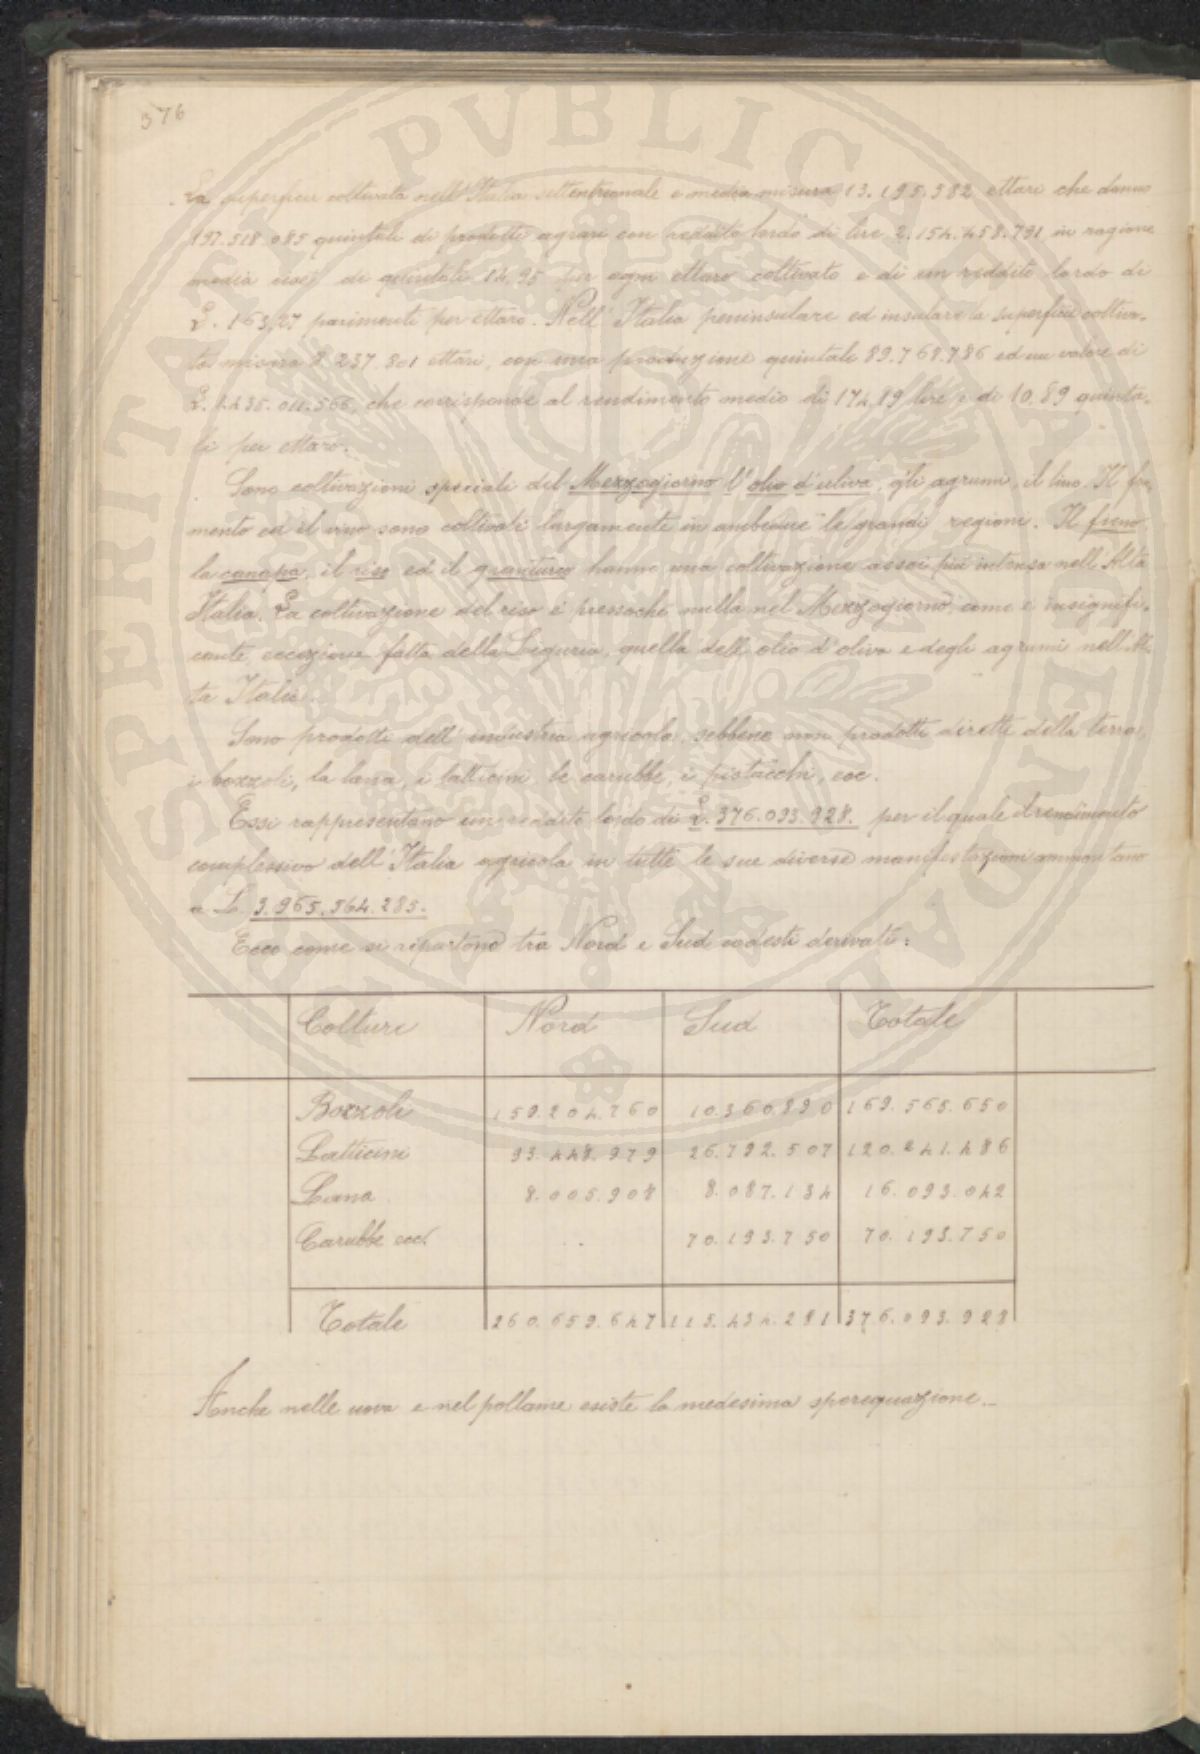 376
La superficie coltivata nell'Italia settentrionale e media misura 13.195.382 ettari che danno
197.518.085 quintali di prodotti agrari con reddito lordo di lire 2.154.458.791 in ragione
media cioè di quintali 14,95 per ogni ettaro coltivato e di un reddito lordo di
L. 163,27 parimenti per ettaro. Nell'Italia peninsulare ed insulare la superficie coltiva-
ta misura 8.237.801 ettari, con una produzione quintali 89.768.786 ed un valore di
L. 1.435.011.566, che corrisponde al rendimento medio di 174,19 lire e di 10.89 quinta-
li per ettaro.
Sono coltivazioni speciali del Mezzogiorno l'olio d'uliva, gli agrumi, il lino. Il fru-
mento ed il vino sono coltivati largamente in ambedue le grandi regioni. Il fieno
la canapa, il riso ed il granturco hanno una coltivazione assai più intensa nell'Alta
Italia. La coltivazione del riso è pressochè nulla nel Mezzogiorno, come è insignifi-
cante, eccezione fatta della Liguria, quella dell'olio d'oliva e degli agrumi nell'Al-
ta Italia.
Sono prodotti dell'industria agricola, sebbene non prodotti diretti della terra,
i bozzoli, la lana, i latticini, le carubbe, i pistacchi, ecc.
Essi rappresentano un reddito lordo di L. 376.093.928. per il quale il rendimento
complessivo dell'Italia agricola in tutte le sue diverse manifestazioni ammontano
a L. 3.965.564.285.
Ecco come si ripartono tra Nord e Sud codesti derivati:
Colture Nord Sud Totale
Bozzoli 159.204.760 10.360.890 169.565.650
Latticini 93.448.979 26.792.507 120.241.486
Lana 8.005.908 8.087.134 16.093.042
Carubbe ecc. 70.193.750 70.193.750
Totale 260.659.647 115.434.281 376.093.928
Anche nelle uova e nel pollame esiste la medesima sperequazione.